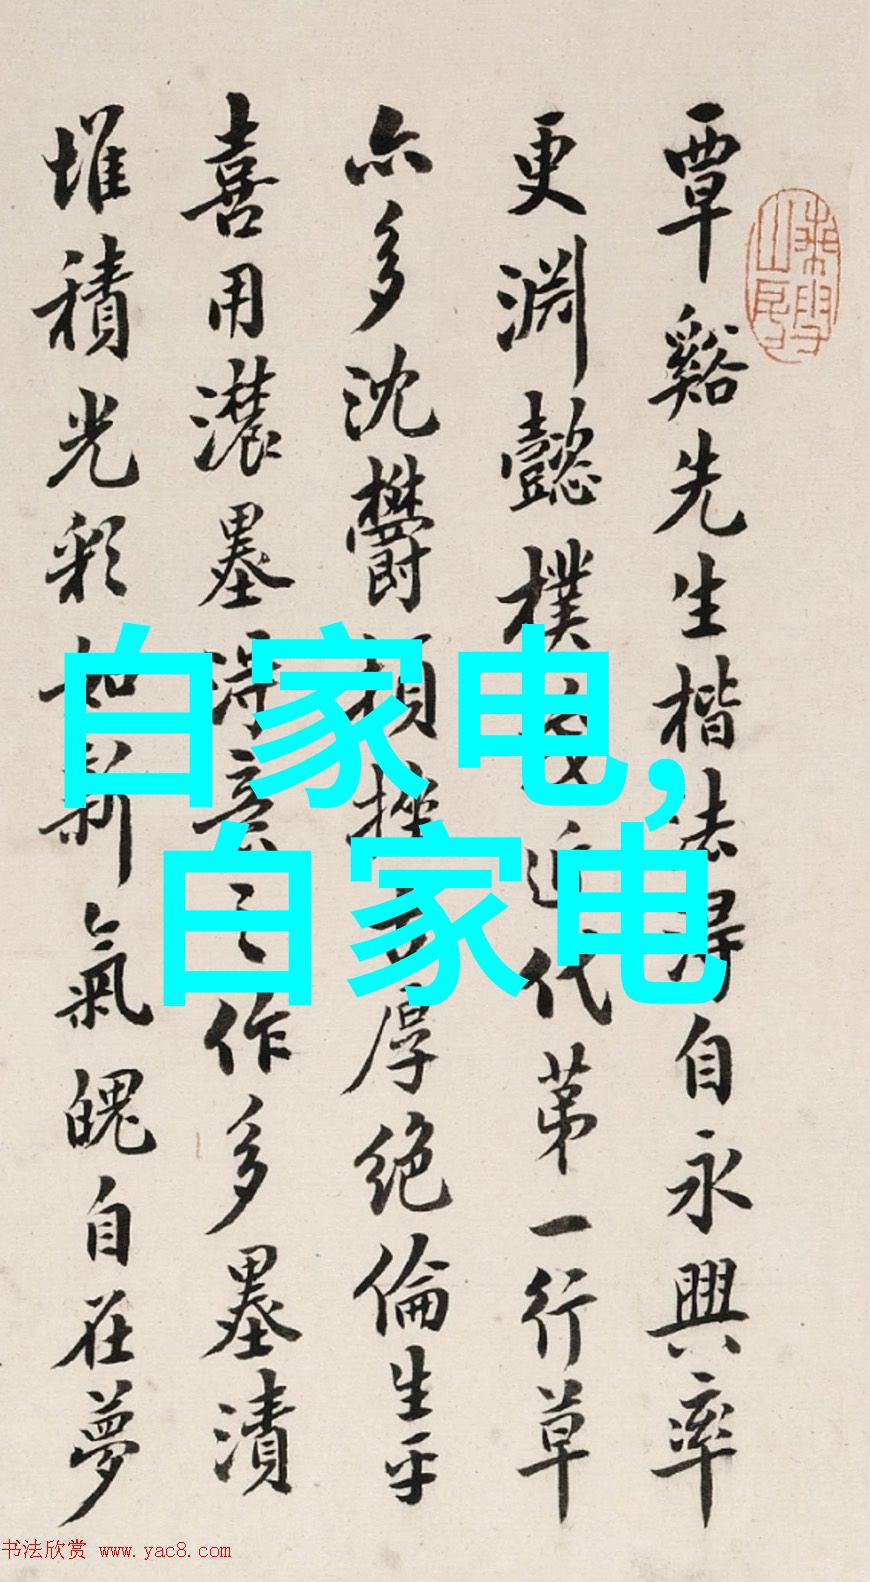 覃谿先生楷法得自永興率
更淵懿樸茂近代第一行草
亦多沈鬱頓挫古厚絕倫生平
喜用濃墨得意之作多墨漬
堆積光彩如新氣魄自在夢
白家电,
白家电
书法欣赏 www.yac8.com